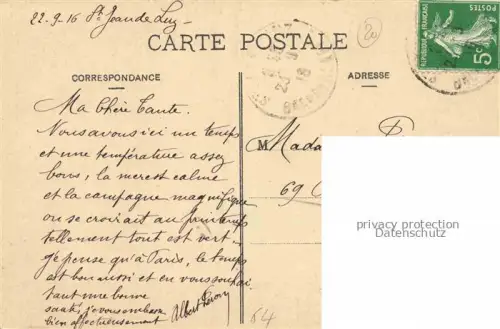 22.9.16 St Jean de Luz
CARTE POSTALE
CORRESPONDANCE
ADRESSE
RÉPUBLIQUE FRANÇAISE
5c
Ma Chère Tante.
Nous avons ici un temps
et une température assez
bons, la mer est calme
et la campagne magnifique
on se croirait au printemps
tellement tout est vert.
je pense qu'à Paris, le temps
est bon aussi et en vous souhai
tant une bonne
santé, je vous embrasse
bien affectueusement Albert
M Mada
69
64
privacy protection
Datenschutz